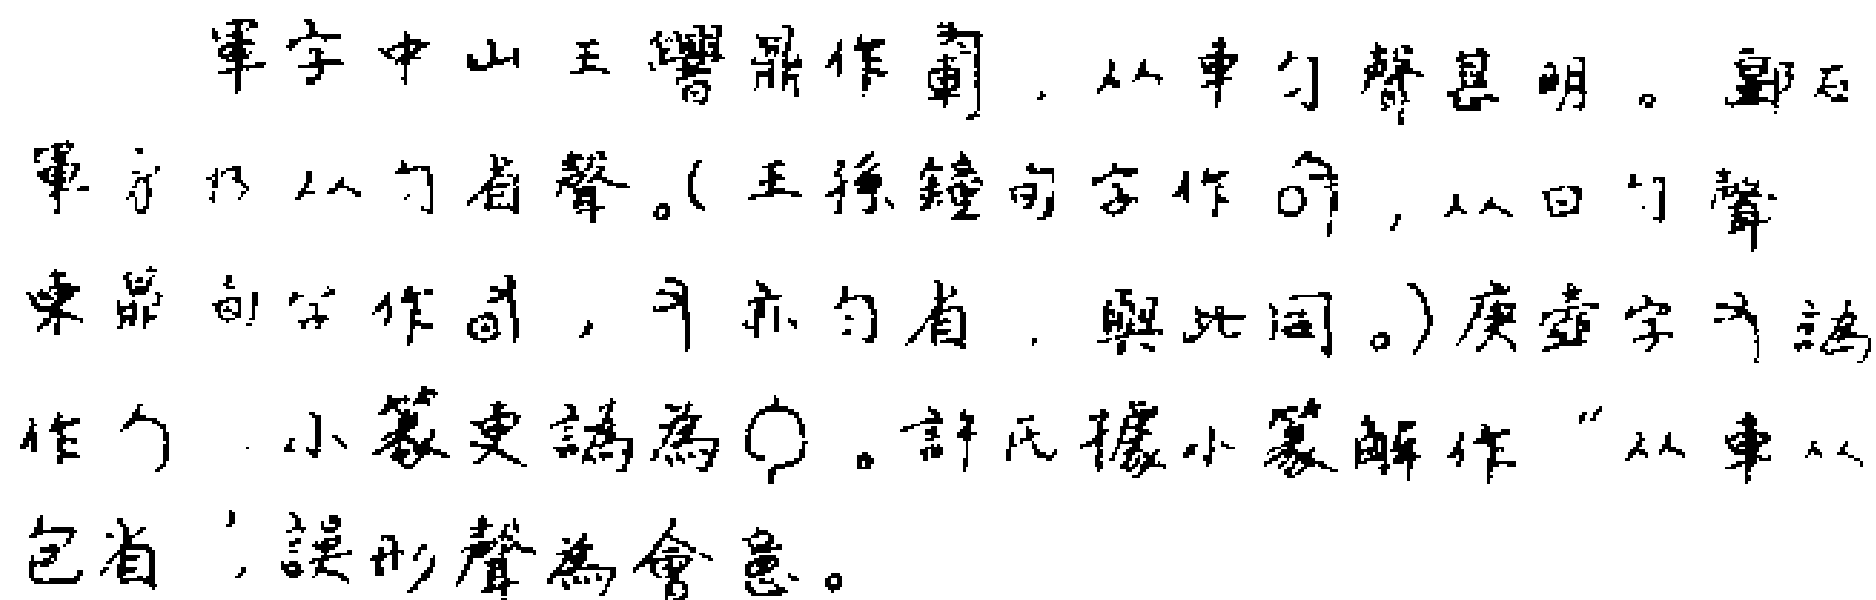 軍字中山王𰯼鼎作軍,从車勻聲甚明。鄭右
軍矛乃从勻省聲。(王孫鐘旬字作,从日勻聲
東鼎旬字作,亦勻省,與此同。)庚壺字又譌
作勹,小篆更譌為。許氏據小篆解作“从車从
包省”,誤形聲為會意。